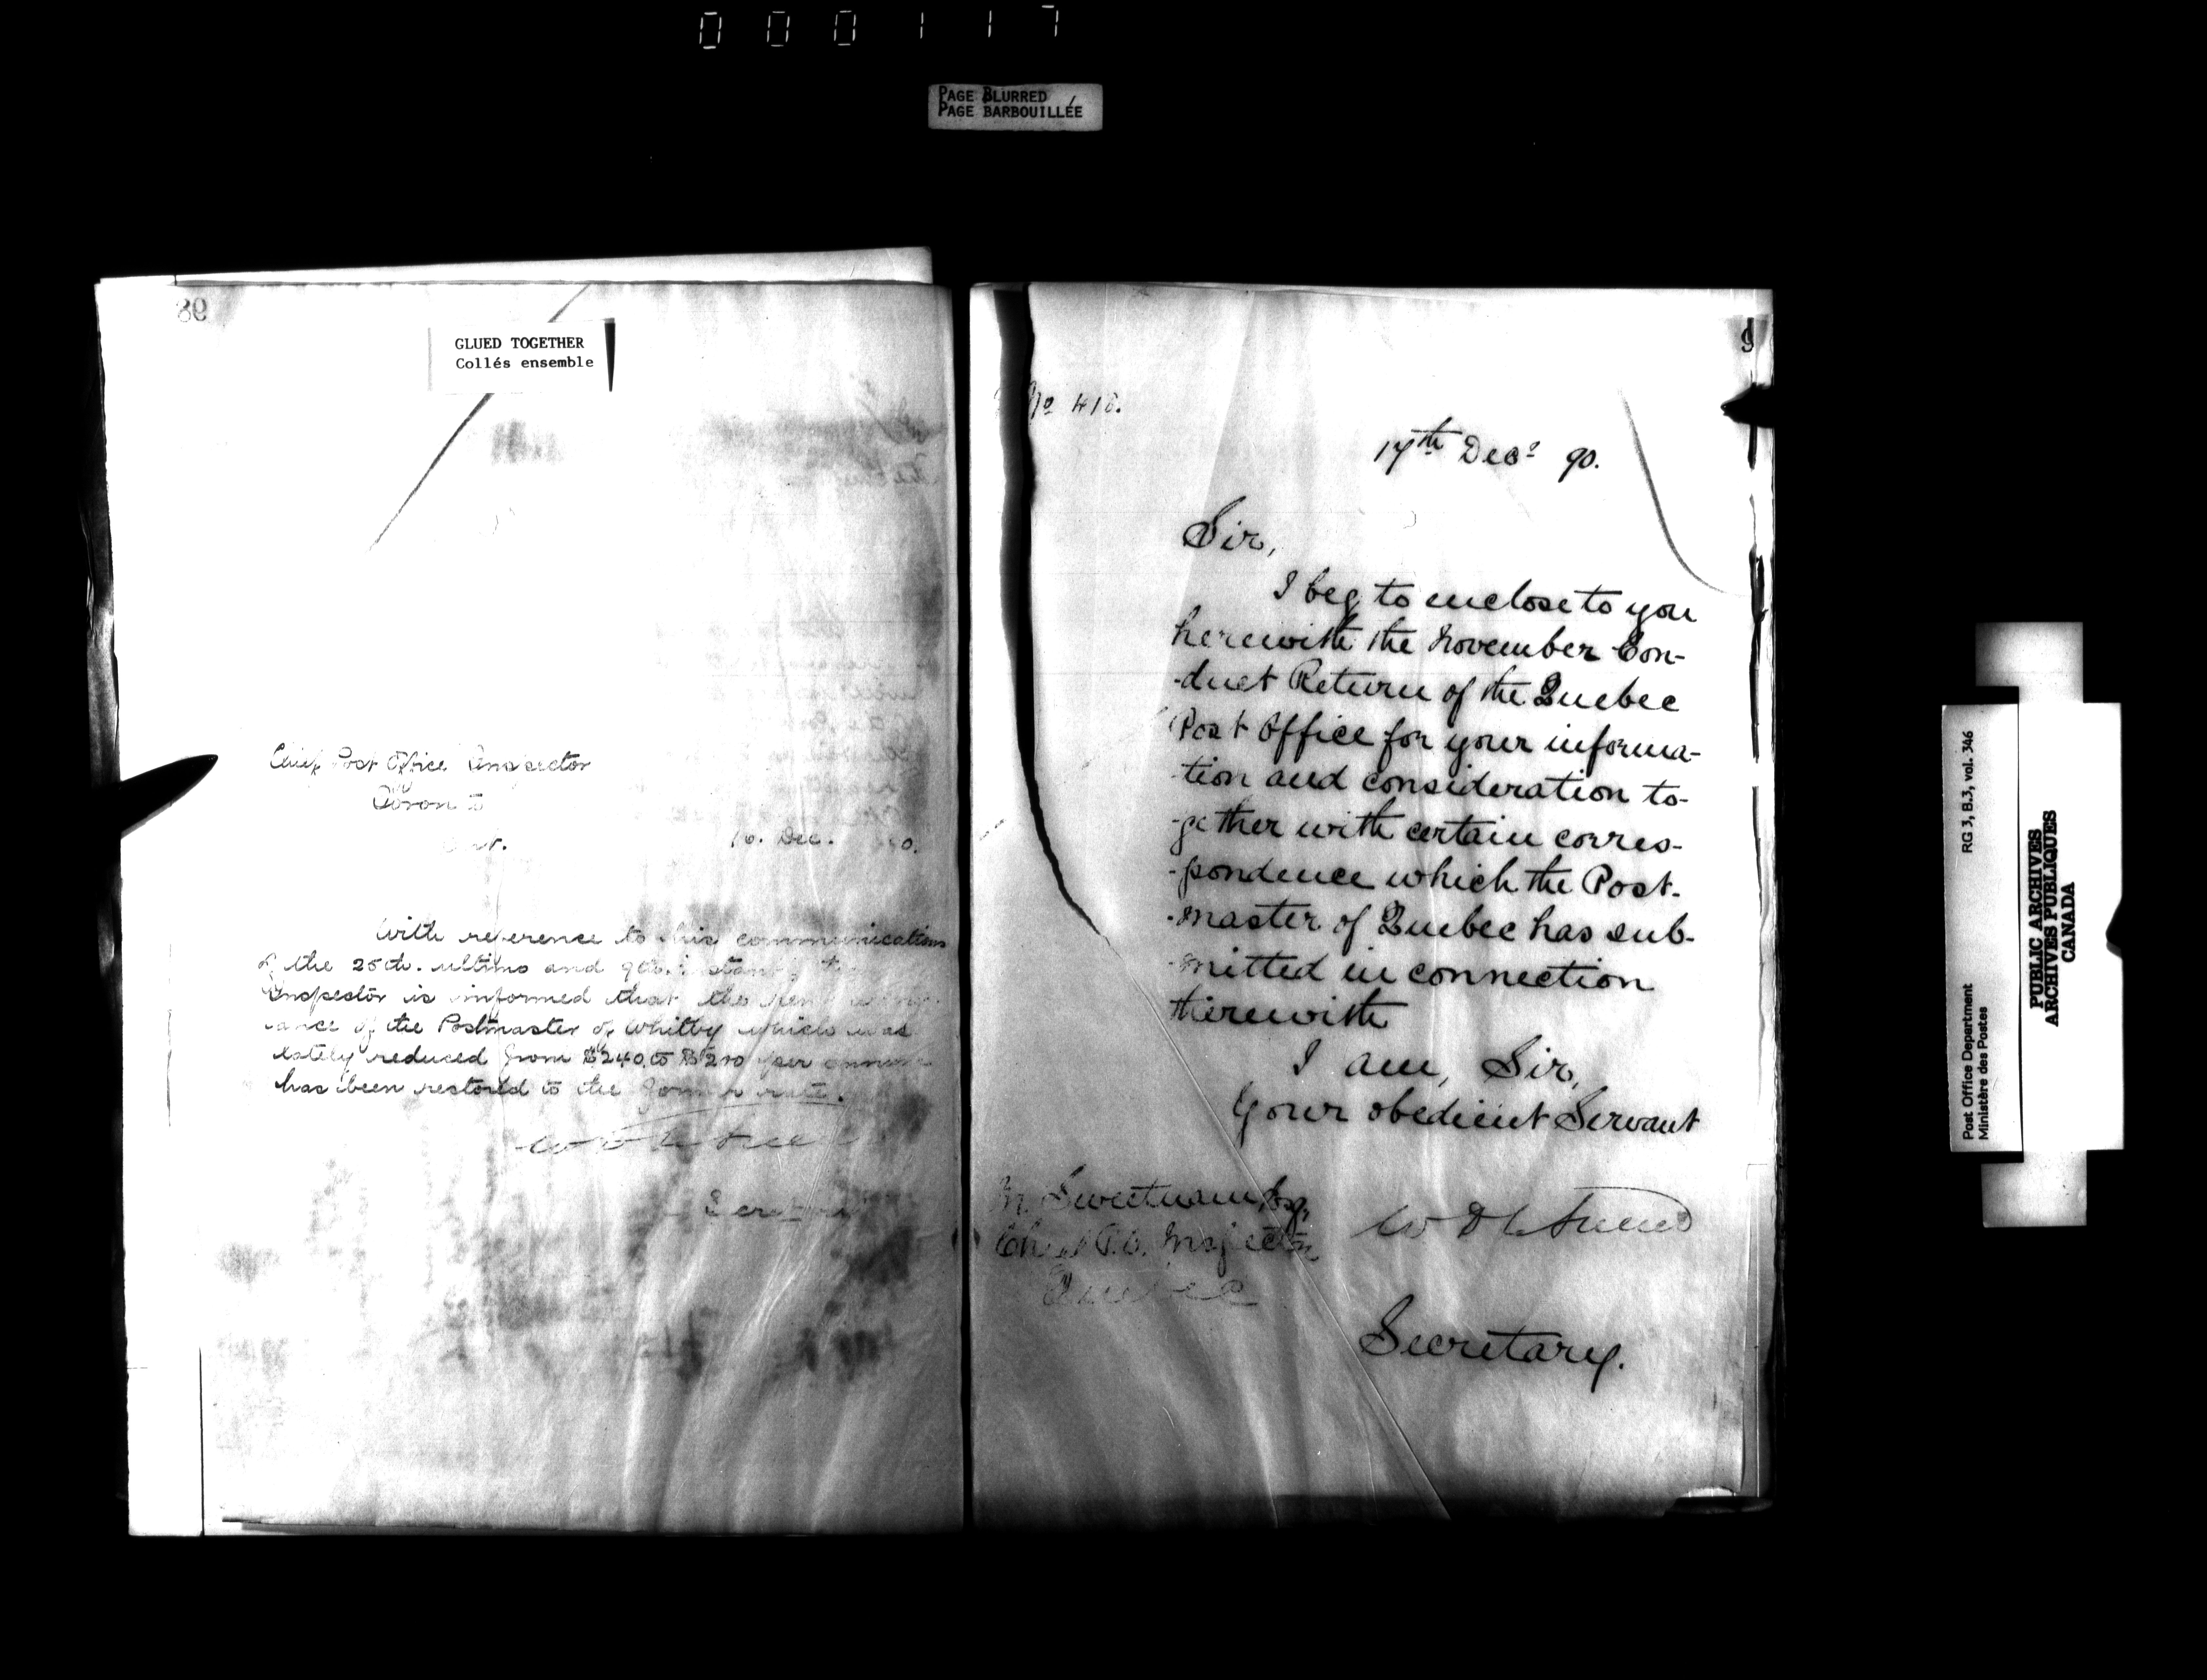 000117
PAGE BLURRED
PAGE BARBOUILLÉE
89
GLUED TOGETHER
Collés ensemble
Chief Post Office Inspector
Toronto
Ont.
16. Dec. 90.
With reference to his communications
of the 25th. ultimo and 9th. instant, the
Inspector is informed that the rent allow-
ance of the Postmaster of Whitby which was
lately reduced from $240. to $200 per annum
has been restored to the former rate.
Secretary
9
No 418.
17th Decr 90.
Sir,
I beg to enclose to you
herewith the November Con-
-duct Return of the Quebec
Post Office for your informa-
-tion and consideration to-
-gether with certain corres-
-pondence which the Post-
-master of Quebec has sub-
-mitted in connection
therewith
I am, Sir,
Your obedient Servant
M. Sweetnam, Esq,
Chief P.O. Inspector
Quebec
Secretary.
Post Office Department
Ministère des Postes
RG 3, B.3, vol. 346
PUBLIC ARCHIVES
ARCHIVES PUBLIQUES
CANADA